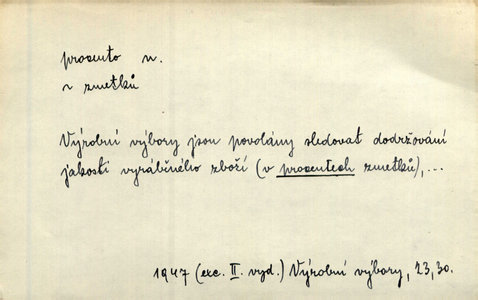 procento n.
~ zmetků
Výrobní výbory jsou povolány sledovat dodržování
jakosti vyráběného zboží (v procentech zmetků),...
1947 (exc. II. vyd.) Výrobní výbory, 23,30.